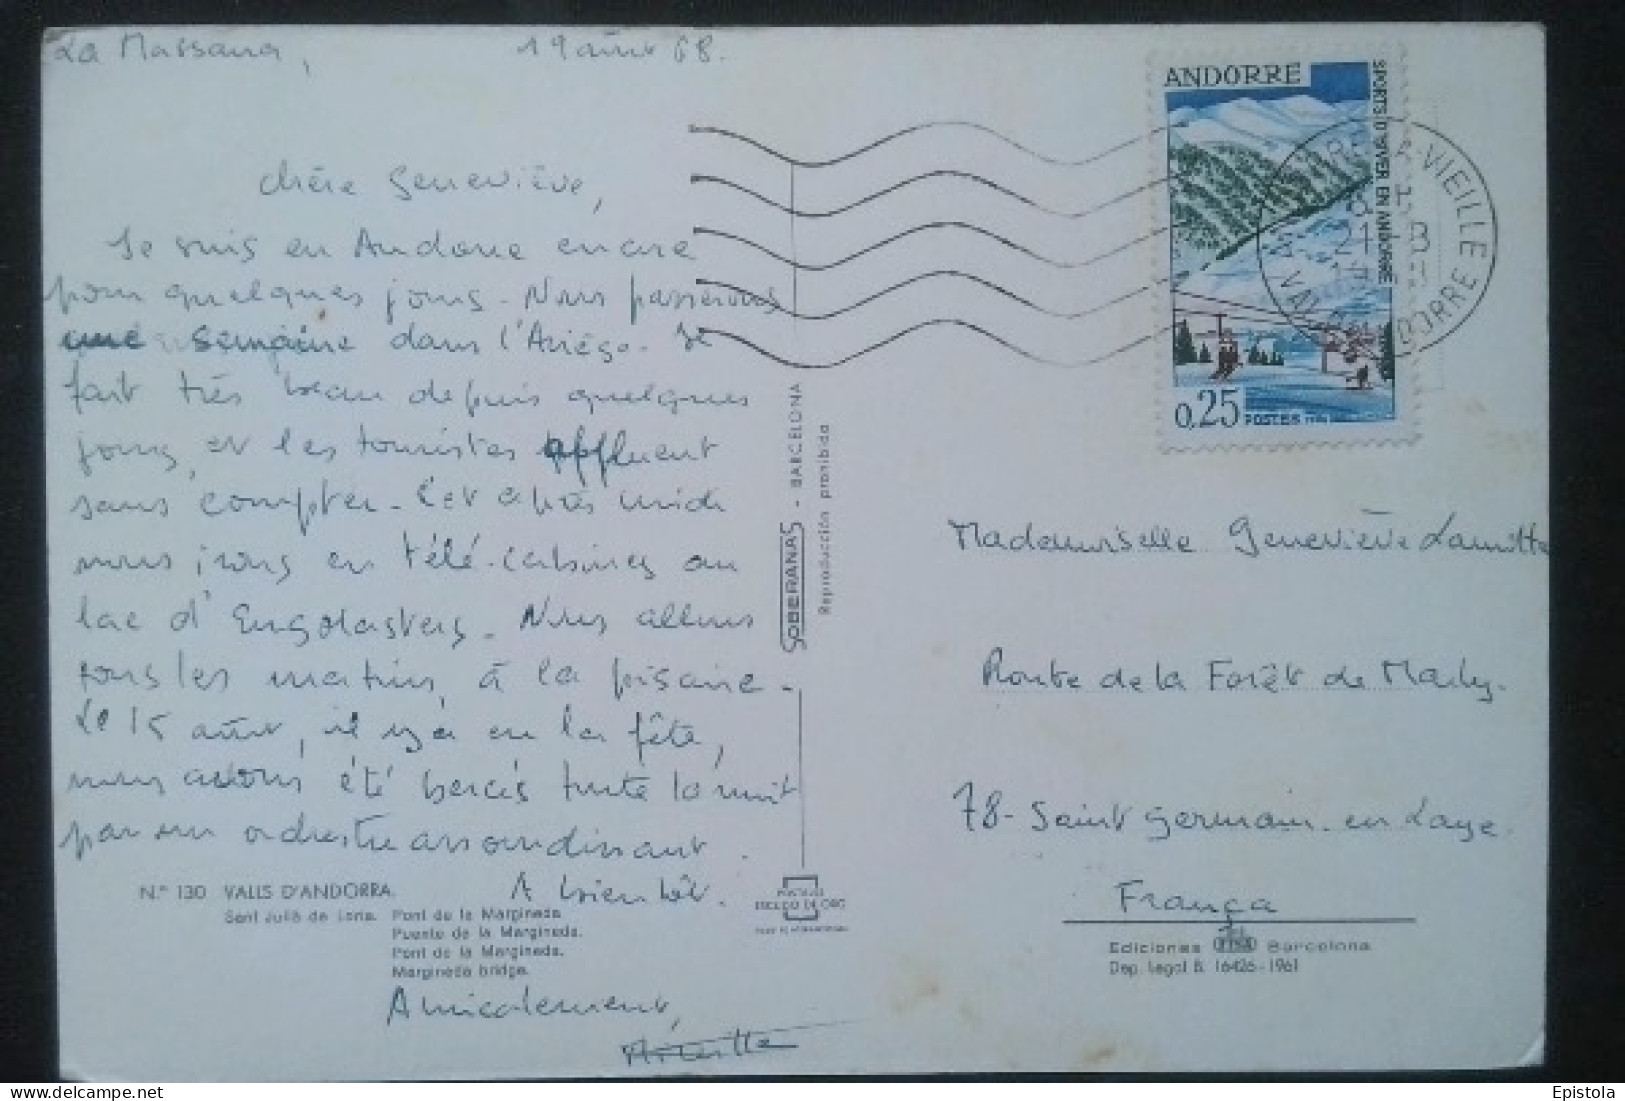 La Massana, 19 août 68.
Chère Geneviève,
Je suis en Andorre encore
pour quelques jours. Nous passerons
une semaine dans l'Ariège. Il
fait très beau depuis quelques
jours, et les touristes affluent
sans compter. Cet après midi
nous irons en télé-cabines au
lac d'Engolasters. Nous allons
tous les matins, à la piscine.
Le 15 août, il y a eu la fête,
nous avons été bercés toute la nuit
par un orchestre assourdissant.
A bientôt.
Amicalement,
N.º 130 VALLS D'ANDORRA.
Sant Julià de Loria. Pont de la Margineda
Puente de la Margineda.
Pont de la Margineda.
Margineda bridge.
SOBERANAS - BARCELONA
Reproducción prohibida
ESCUDO DE ORO
ANDORRE
SPORTS D'HIVER EN ANDORRE
0,25 POSTES
LA-VIEILLE
Mademoiselle Geneviève
Route de la Forêt de Marly.
78 - Saint Germain-en Laye.
França
Ediciones FISA Barcelona
Dep. Legal B. 16426-1961
Epistola